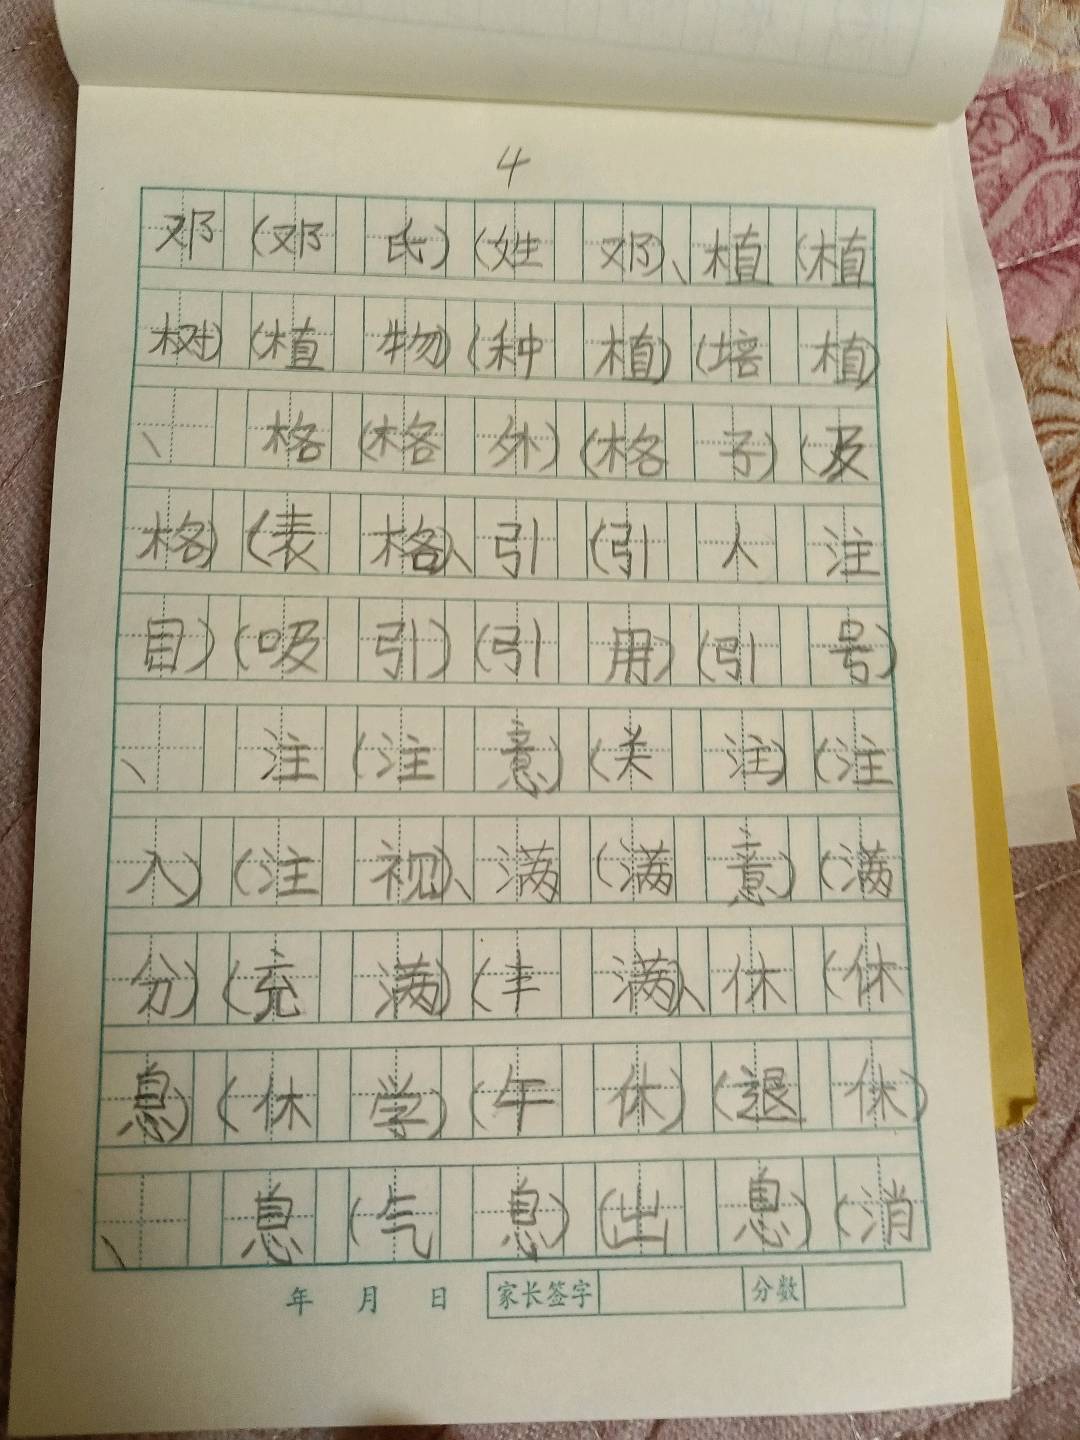 4
邓(邓氏)(姓邓)、植(植
树)(植物)(种植)(培植)
、格(格外)(格子)(及
格)(表格)、引(引人注
目)(吸引)(引用)(引号)
、注(注意)(关注)(注
入)(注视)、满(满意)(满
分)(充满)(丰满)、休(休
息)(休学)(午休)(退休)
、息(气息)(出息)(消
年 月 日 家长签字 分数